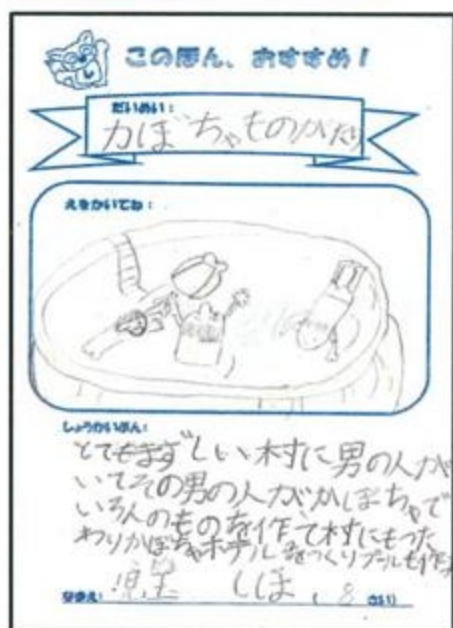 このほん、おすすめ！
だいめい：
カぼちゃものがたり
えをかいてね：
しょうかいぶん：
とてもまずしい村に男の人が
いてその男の人がかぼちゃで
いろんのものを作て村にもった
わりかぼちゃホテルをつくりプールも作
なまえ： しほ, 8 さい）